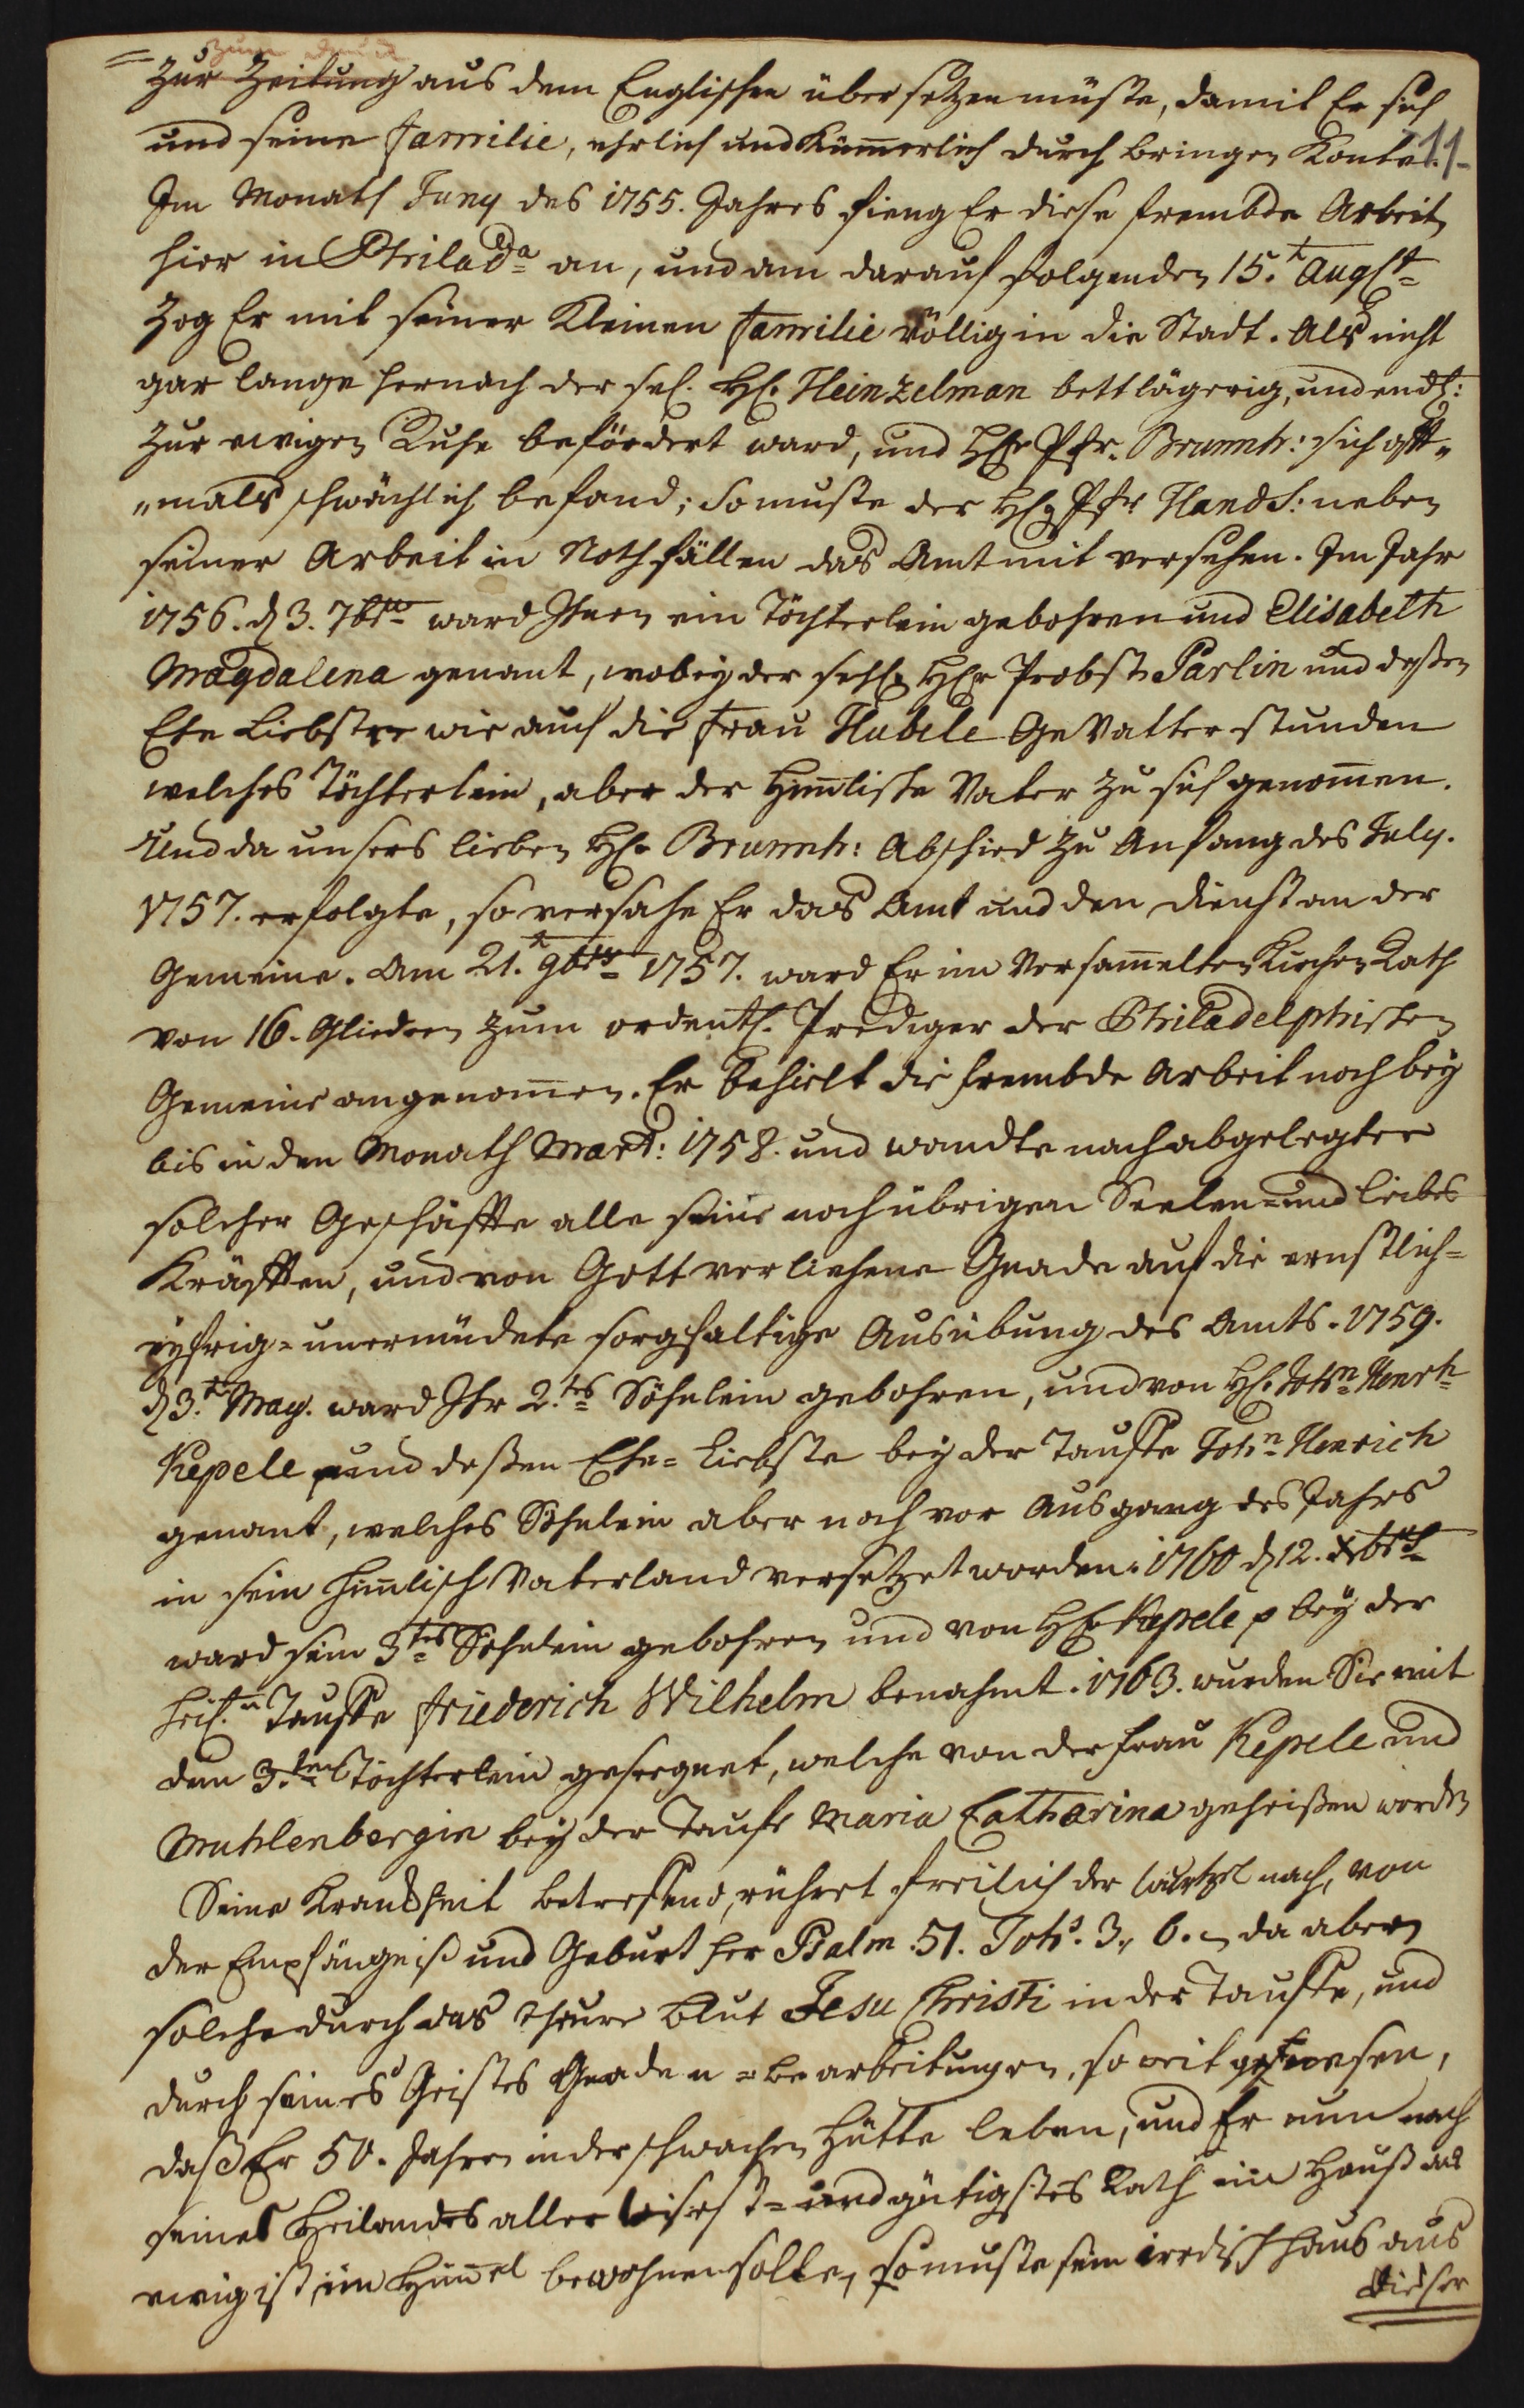 zum Druck
zur Zeitung aus dem Englischen übersetzen müste, damit Er sich
und seine Familie, ehrlich und kümerlich durch bringen konte. 11
Im Monath Juny des 1755. Jahres fieng Er diese frembde Arbeit
hier in Philada an, und am darauf folgenden 15.t Augst
Zog Er mit seiner kleinen Familie völlig in die Stadt. Als nicht
gar lange hernach der sel. H. Heinzelman bettlägerig, und endl:
zur ewigen Ruhe befördert ward, und HEr Pfr. Brunnh: sich offt„
„mals schwächlich befand; so muste der HErr Pfr HandS: neben
seiner Arbeit in Nothfällen das Amt mit versehen. Im Jahr
1756. d 3. 7br ward Ihnen ein Töchterlein gebohren und Elisabeth
Magdalena genant, wobey der sehl. HEr Probst Parlin und deßen
Ehe Liebste wie auch die Frau Hubele Gevatter stunden
welches Töchterlein, aber der Himlische Vater zu sich genomen.
Und da unsers lieben HE. Brunnh: Abschied zu Anfang des July.
1757. erfolgte, so versahe Er das Amt und den Dienst an der
Gemeine. Am 21.t 9br 1757. ward Er im versamelten Kirchen Rath
von 16. Gliedern zum ordentl. Prediger der Philadelphischen
Gemeine angenomen. Er behielt die frembde Arbeit noch bey
bis in den Monath Mart: 1758. und wandte nach abgelegter
solcher Geschäffte alle seine noch übrigen Seelen= und Leibes
Kräfften, und von Gott verliehene Gnade auf die ernstlich=
eyfrig= unermüdete sorgfaltige Ausübung des Amts. 1759.
d 3.t May. ward Ihr 2.tes Söhnlein gebohren, und von H. John Henrh
Kepele und deßen Ehe= Liebste bey der Tauffe John Henrich
genant, welches Söhnlein aber noch vor Ausgang des Jahrs
in sein himlisch Vaterland versetzet worden. 1760 d 12. Xbr
ward sein 3tes Söhnlein gebohren und von HE Kepele p bey der
heil.n Tauffe Friederich Wilhelm benahmt. 1763. wurden Sie mit
dem 3.ten Töchterlein gesegnet, welche von der Frau Kepele und
Muhlenbergin bey der Taufe Maria Catharina geheißen worden
Seine Krankheit betreffend, rühret freilich der Wurtzel nach, von
der Empfängniß und Geburt her Psalm. 51. Joh. 3, 6. da aber
solche durch das theure Blut Jesu Christi in der Tauffe, und
durch seines Geistes Gnaden= bearbeitungen, so weit gewesen,
daß Er 50. Jahre in der schwachen Hütte leben, und Er nun nach
seines Heilandes aller weisest= und gütigstes Rath ein Hauß das
ewig ist, im Himel bewohnen solte, so muste sein irrdisch Haus aus
dieser